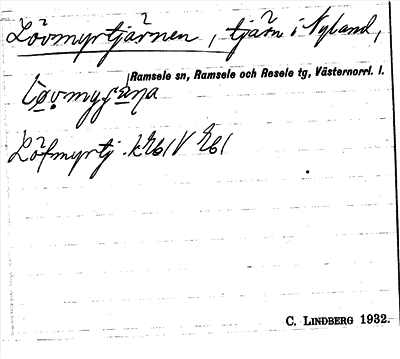 Lövmyrtjärnen, tjärn i Nyland,
Ramsele sn, Ramsele och Resele tg, Västernorrl. l.
Löfmyrtj.
C. LINDBERG 1932.